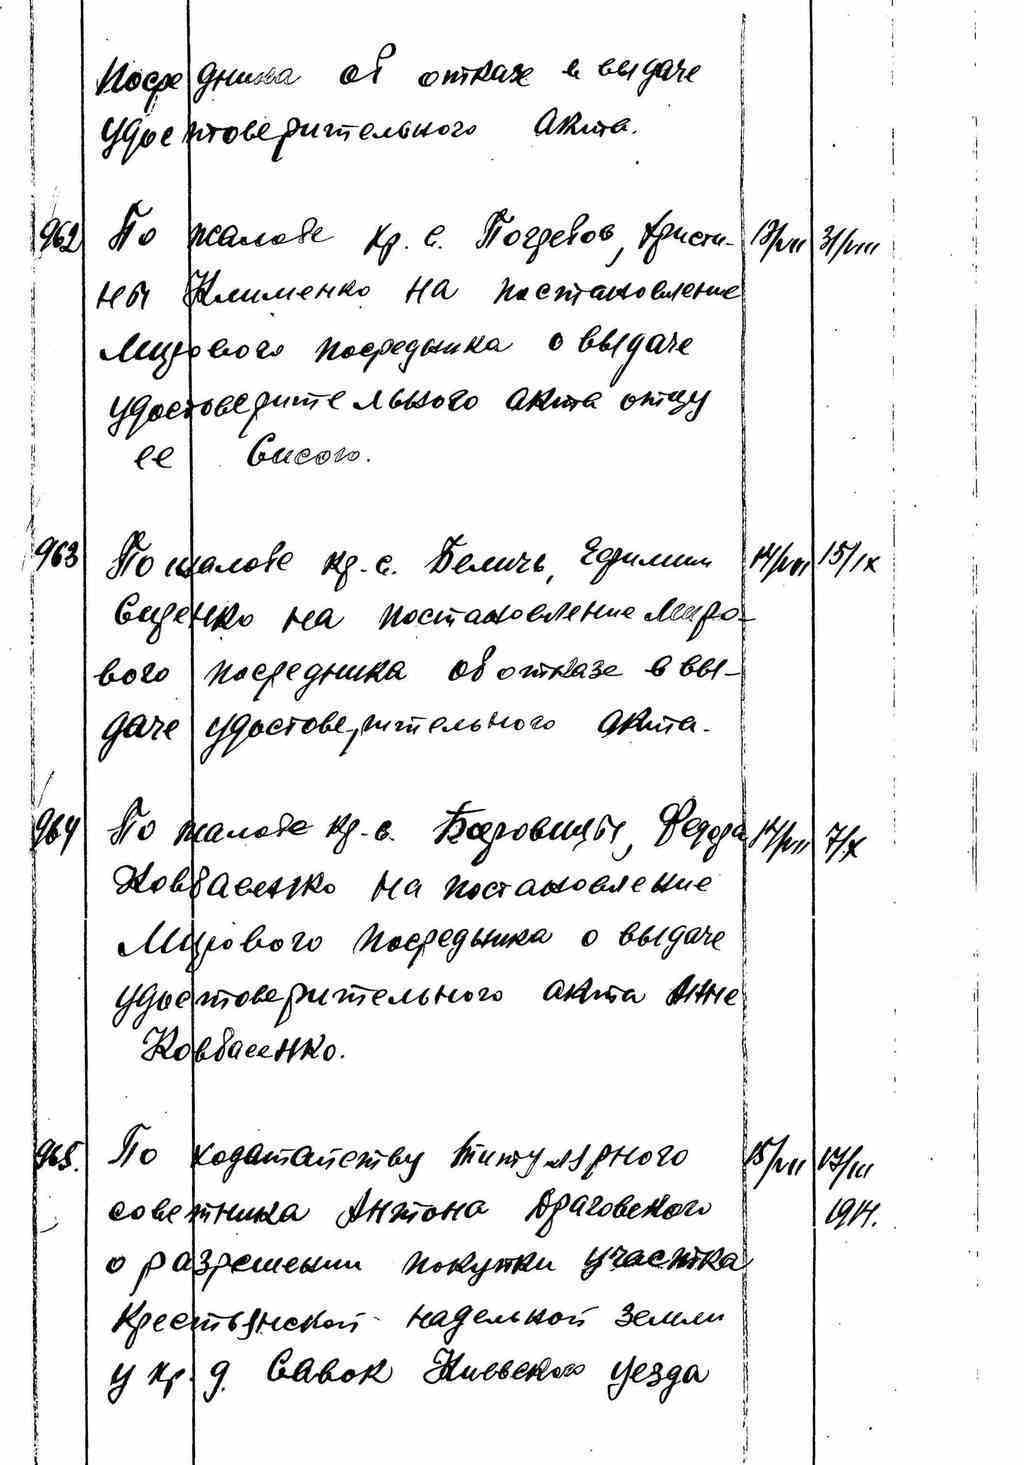 Посредника об отказе в выдаче
удостоверительного акта.
962 По жалобе кр. с. Погребов, Христи- 13/VII 31/VIII
ны Клименко на постановление
Мирового посредника о выдаче
удостоверительного акта отцу
ее Сисого.
963 По жалобе кр. с. Беличь, Ефимии 14/VII 15/IX
Сиденко на постановление Миро-
вого посредника об отказе в вы-
даче удостоверительного акта.
964 По жалобе кр. с. Федора 14/VII 7/X
Ковбасенко на постановление
Мирового посредника о выдаче
удостоверительного акта Анне
Ковбасенко.
965. По ходатайству титулярного 15/VII 17/III
советника Антона Драговского 1914.
о разрешении покупки участка
крестьянской надельной земли
у кр. д. Савок Киевского уезда